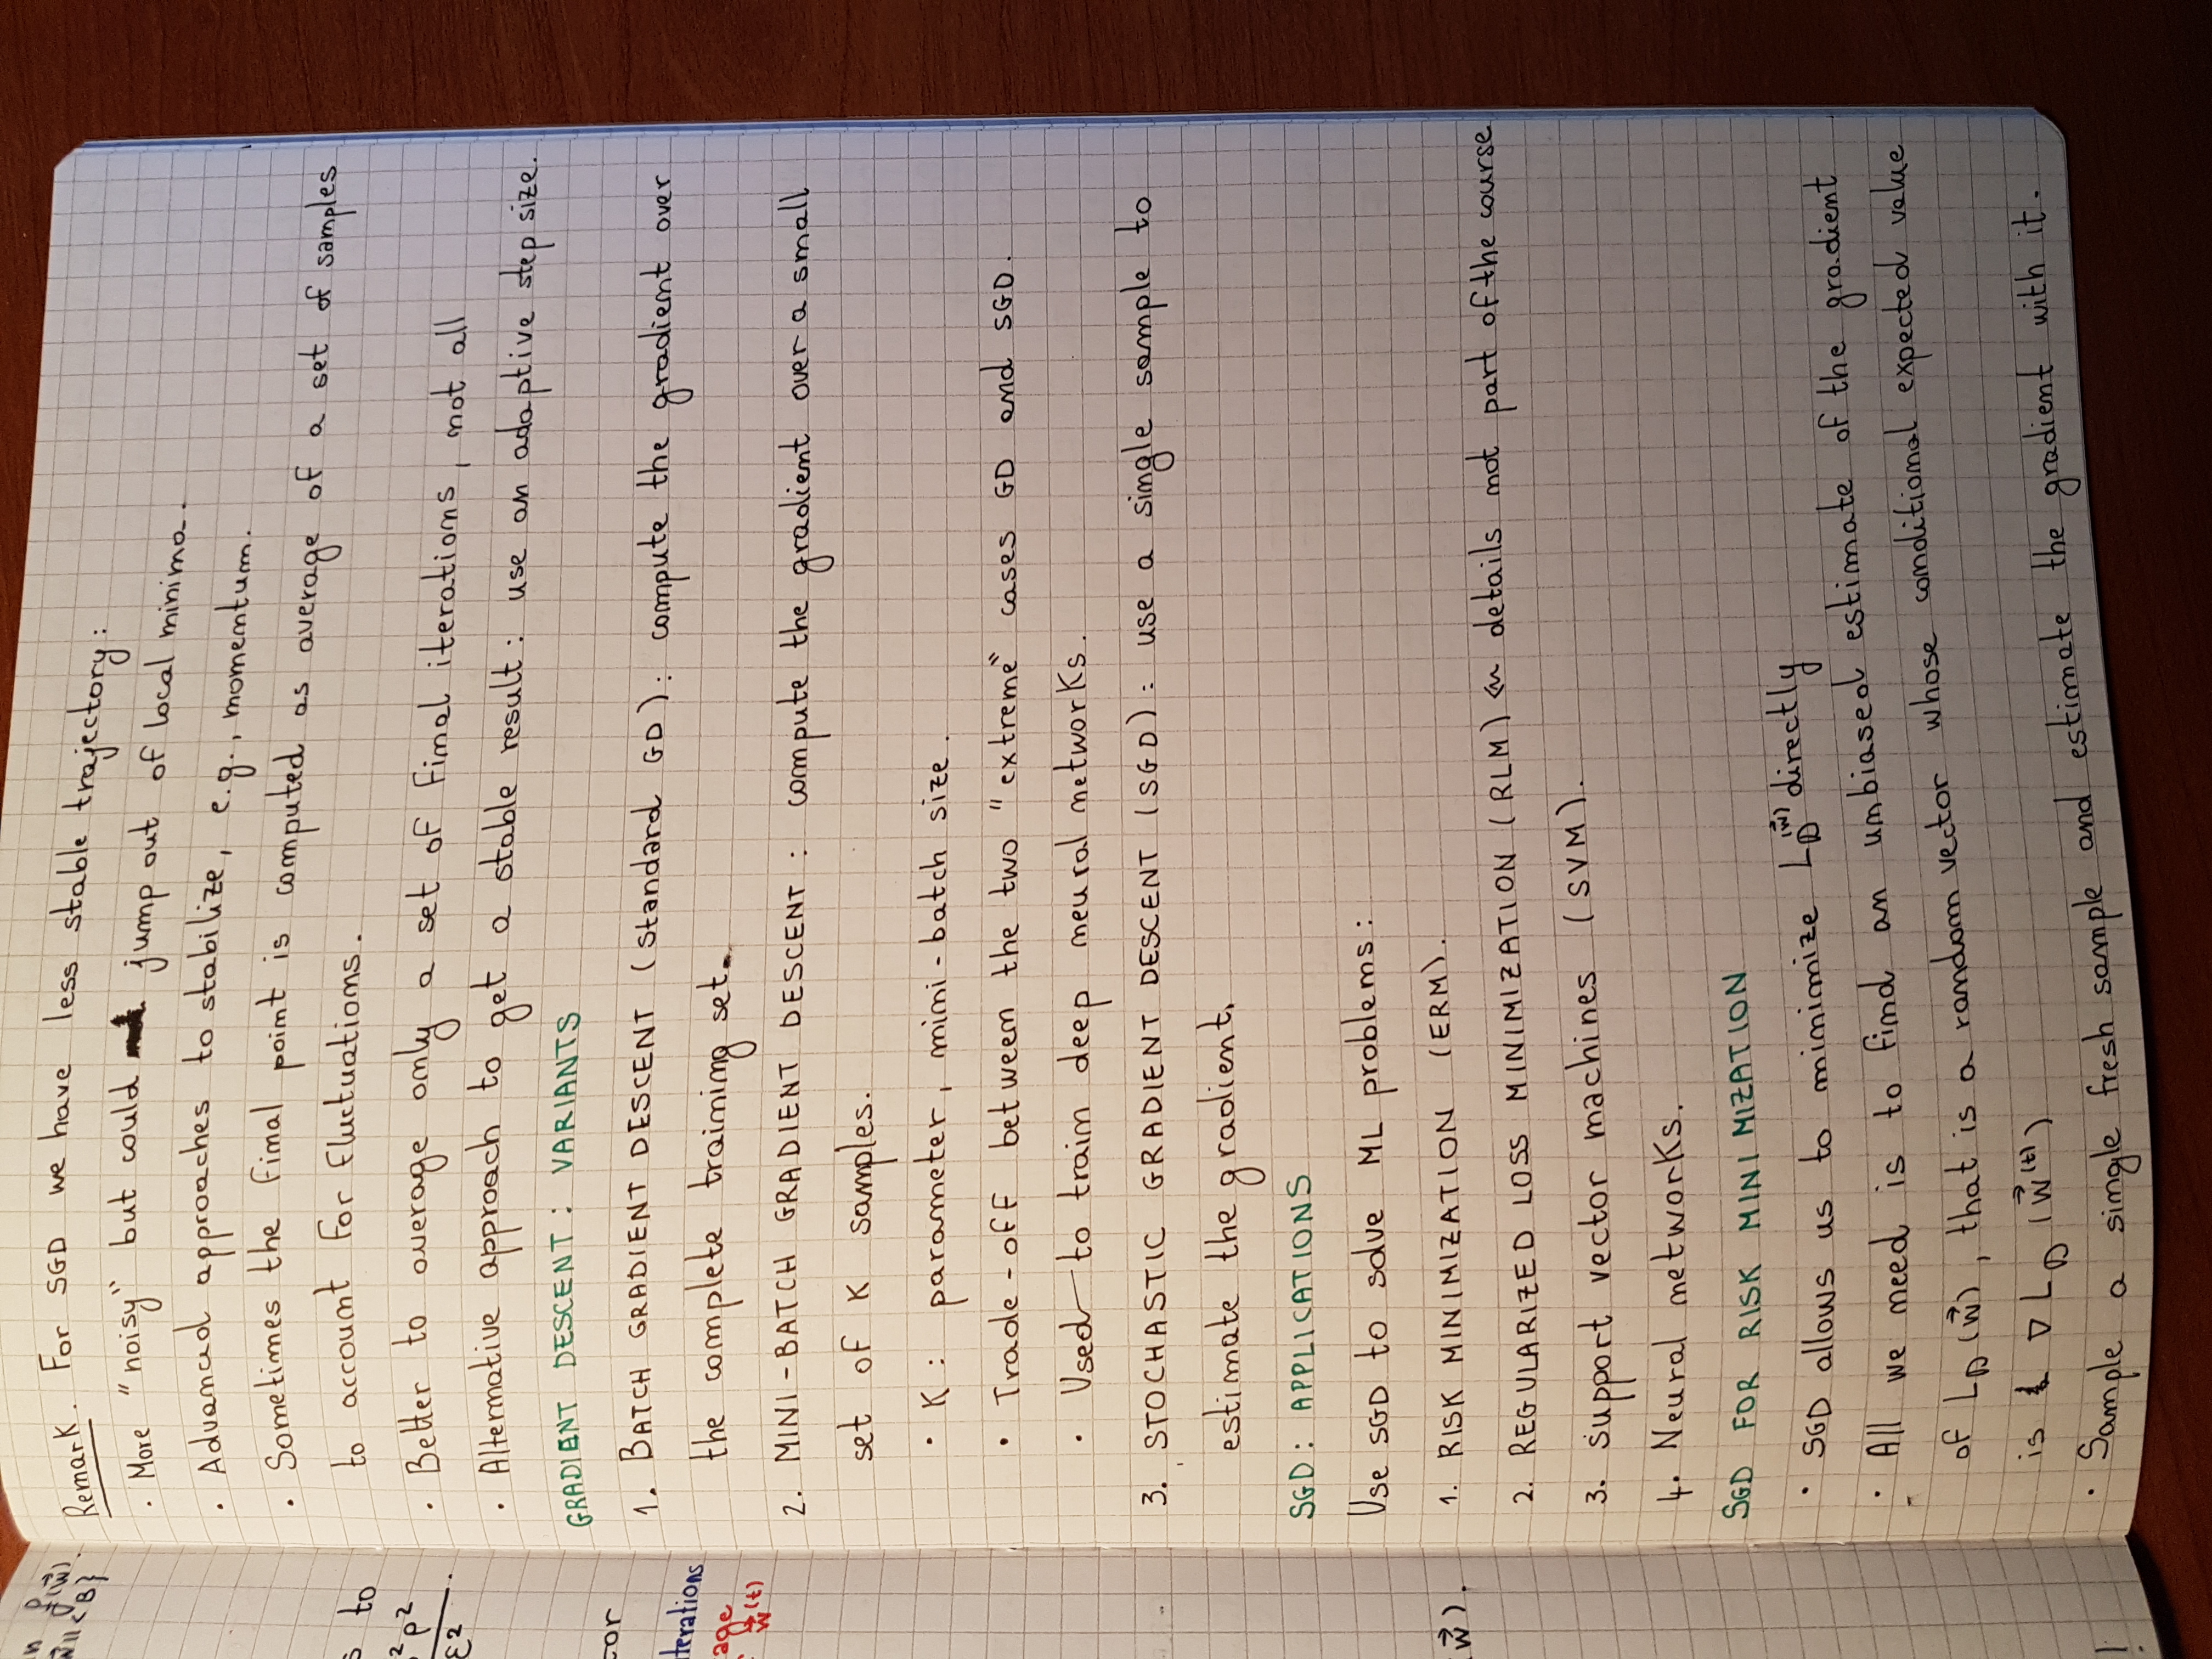 n f(w⃗).
w⃗|| < B}
s to
²ρ²
ε²
terations
age
w⃗⁽ᵗ⁾
(w⃗).
!
Remark. For SGD we have less stable trajectory:
· More "noisy" but could jump out of local minima.
· Advanced approaches to stabilize, e.g., momentum.
· Sometimes the final point is computed as average of a set of samples
to account for fluctuations.
· Better to average only a set of final iterations, not all
· Alternative approach to get a stable result: use an adaptive step size.
GRADIENT DESCENT: VARIANTS
1. BATCH GRADIENT DESCENT (standard GD): compute the gradient over
the complete training set.
2. MINI-BATCH GRADIENT DESCENT: compute the gradient over a small
set of K samples.
· K: parameter, mini-batch size.
· Trade-off between the two "extreme" cases GD and SGD.
· Used to train deep neural networks.
3. STOCHASTIC GRADIENT DESCENT (SGD): use a single sample to
estimate the gradient.
SGD: APPLICATIONS
Use SGD to solve ML problems:
1. RISK MINIMIZATION (ERM).
2. REGULARIZED LOSS MINIMIZATION (RLM) ← details not part of the course
3. support vector machines (SVM).
4. Neural networks.
SGD FOR RISK MINIMIZATION
· SGD allows us to minimize L_D(w⃗) directly
· All we need is to find an unbiased estimate of the gradient
of L_D(w⃗), that is a random vector whose conditional expected value
is ∇L_D(w⃗⁽ᵗ⁾)
· Sample a single fresh sample and estimate the gradient with it.